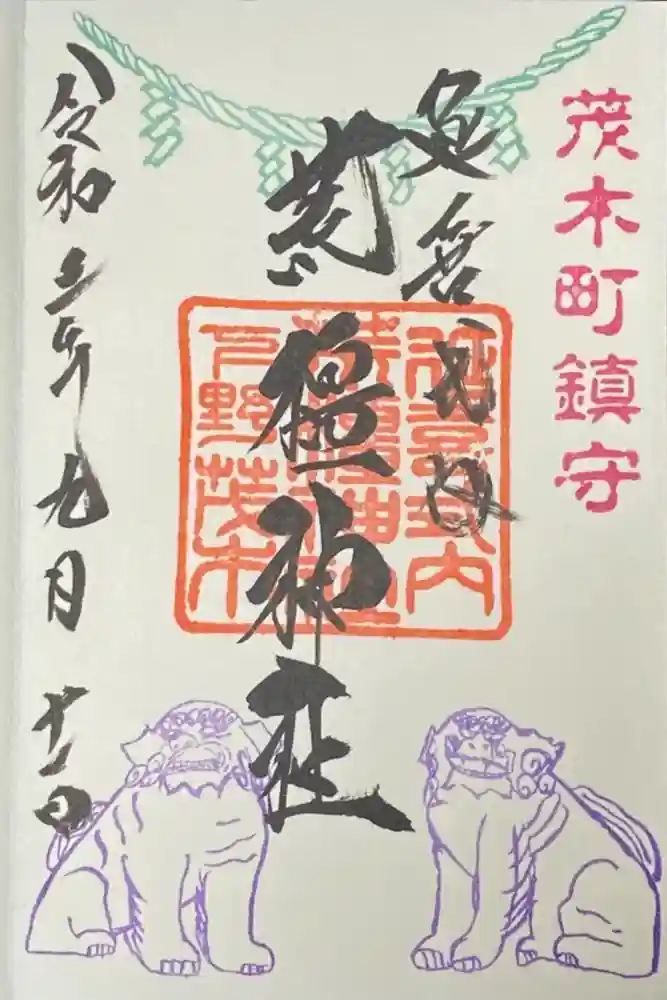 茂木町鎮守
延喜式内
荒橿神社
令和年九月十一日
延喜式内
荒橿神社
下野茂木